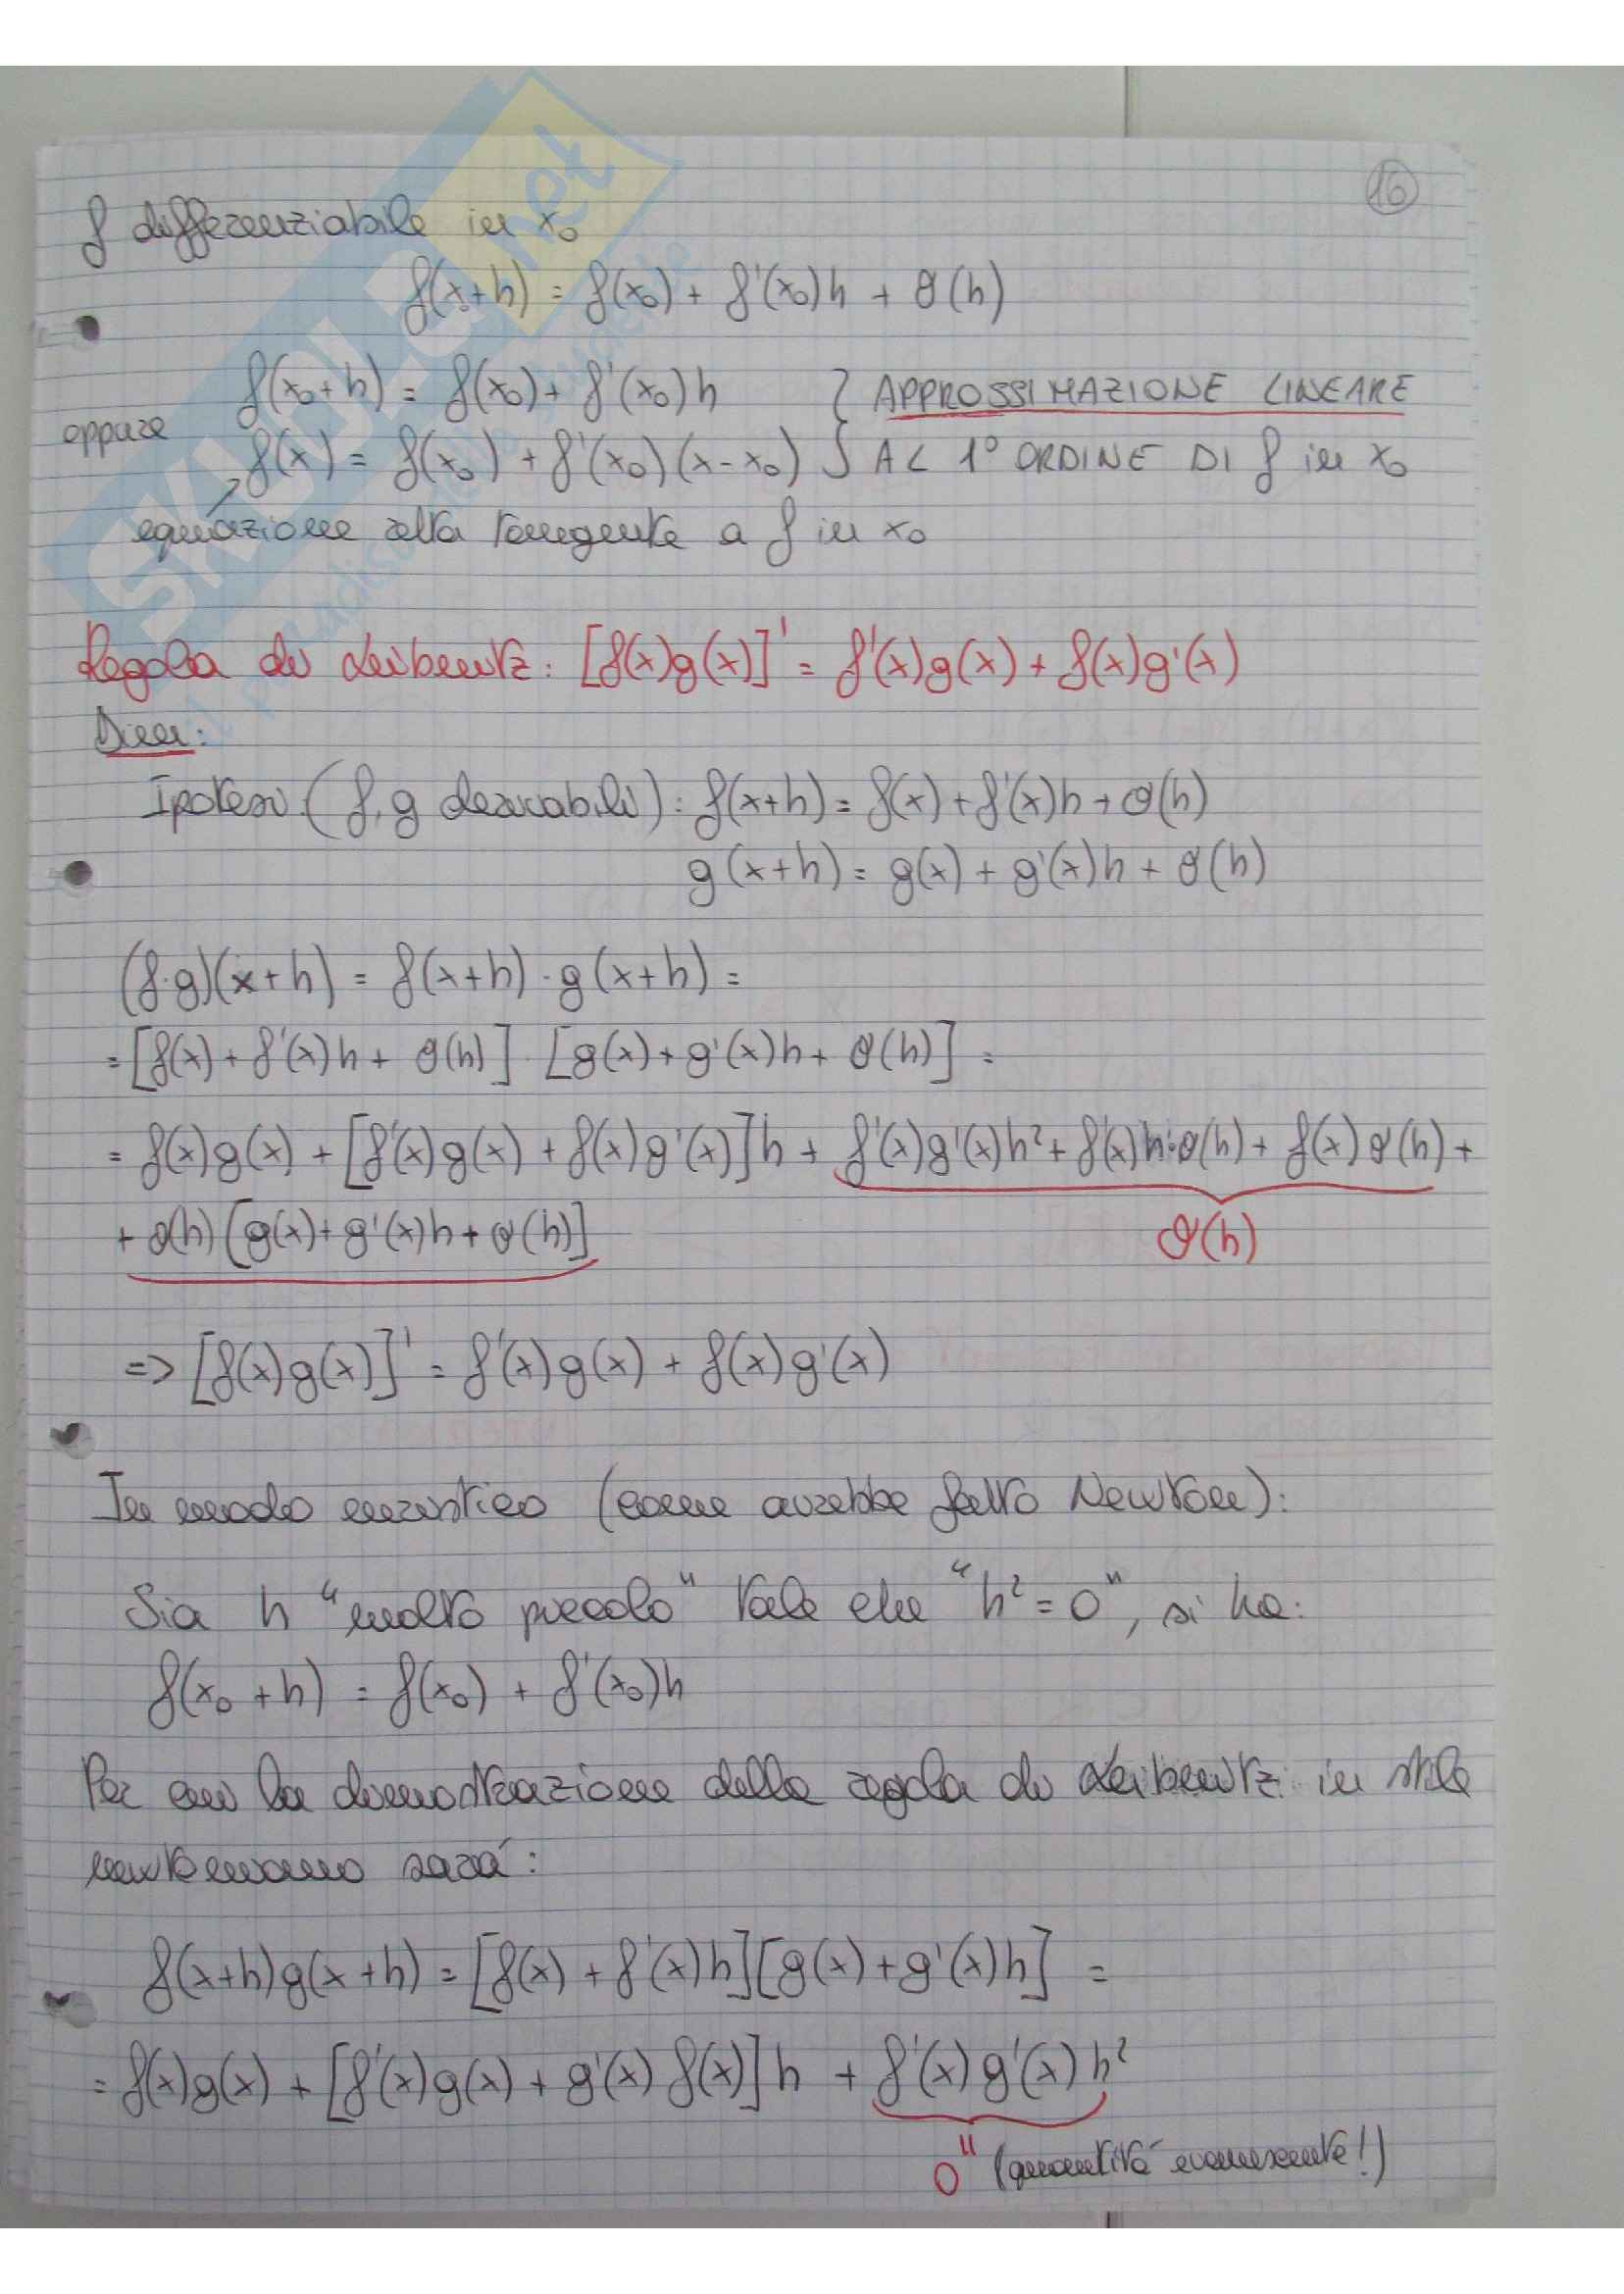 16
f differenziabile in x₀
f(x₀+h) = f(x₀) + f'(x₀)h + o(h)
f(x₀+h) = f(x₀) + f'(x₀)h } APPROSSIMAZIONE LINEARE
oppure f(x) = f(x₀) + f'(x₀)(x-x₀) } AL 1° ORDINE DI f in x₀
equazione retta tangente a f in x₀
Regola di Leibnitz: [f(x)g(x)]' = f'(x)g(x) + f(x)g'(x)
Dim:
Ipotesi (f, g derivabili): f(x+h) = f(x) + f'(x)h + o(h)
g(x+h) = g(x) + g'(x)h + o(h)
(f·g)(x+h) = f(x+h)·g(x+h) =
= [f(x) + f'(x)h + o(h)]·[g(x) + g'(x)h + o(h)] =
= f(x)g(x) + [f'(x)g(x) + f(x)g'(x)]h + f'(x)g'(x)h² + f'(x)h·o(h) + f(x)o(h) +
+ o(h)[g(x) + g'(x)h + o(h)]
o(h)
=> [f(x)g(x)]' = f'(x)g(x) + f(x)g'(x)
In modo euristico (come avrebbe fatto Newton):
Sia h "molto piccolo" tale che "h² = 0", si ha:
f(x₀+h) = f(x₀) + f'(x₀)h
Per cui la dimostrazione della regola di Leibnitz in stile
newtoniano sarà:
f(x+h)g(x+h) = [f(x) + f'(x)h][g(x) + g'(x)h] =
= f(x)g(x) + [f'(x)g(x) + g'(x)f(x)]h + f'(x)g'(x)h²
0" (quantità evanescente!)
SKUOLA.net